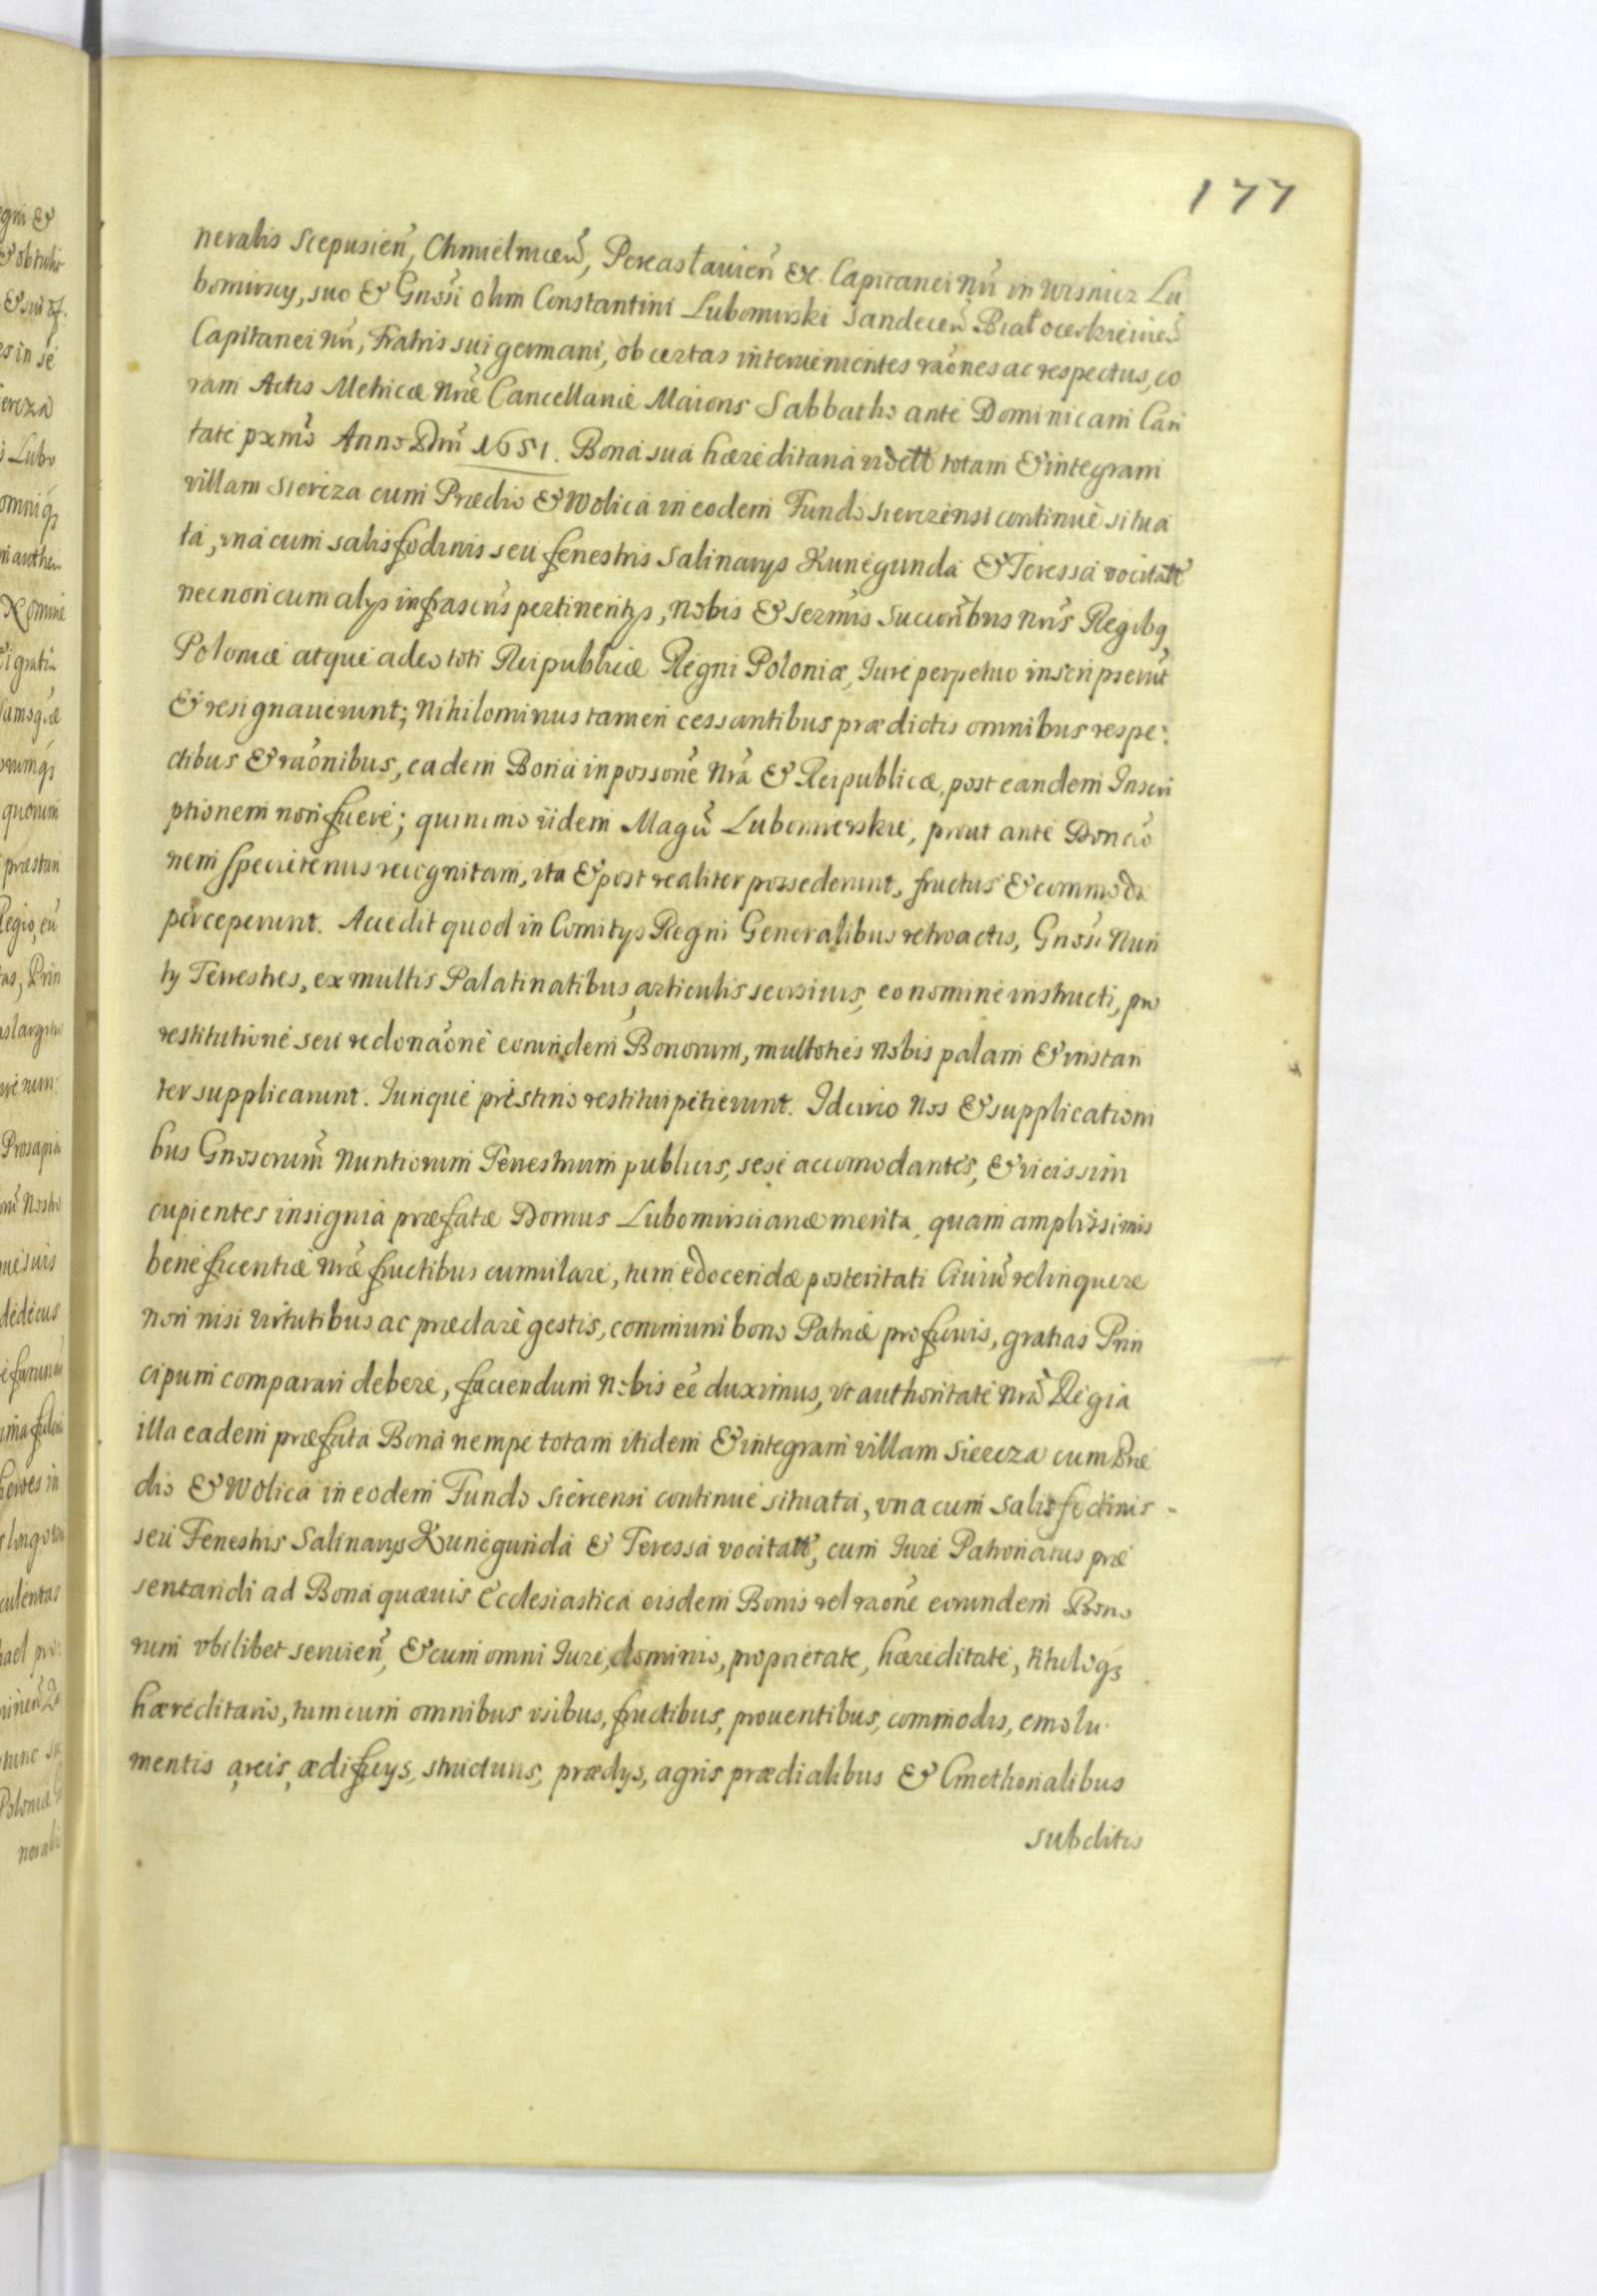 177
neralis Scepusień, Chmielnicen̄, Pereasłauień &c. Capitanei Nrī in Wisnicz Lu
bomirscy, suo & Gnosi olim Constantini Lubomirski Sandecen̄ Białocerkieuien̄
Capitanei Nrī, Fratris sui germani, ob certas interuenientes raones ac respectus, co
ram Actis Metricæ Nræ Cancellariæ Maioris Sabbatho ante Dominicam Cari
tate pxmo Anno Dni 1651. Bona sua hæreditaria vdelt totam & integram
villam Siercza cum Prædio & Wolica in eodem Fundo Sierczensi continuè situa
ta, vna cum salisfodinis seu fenestris Salinarys Kunegunda & Teressa vocitatt
necnon cum alys infrascris pertinentys, Nobis & Sermis Succoribus Nris Regibq
Poloniæ atque adeo toti Reipublicæ Regni Poloniæ, Iure perpetuo inscripserut
& resignauerunt; Nihilominus tamen cessantibus prædictis omnibus respe:
ctibus & raonibus, eadem Bona in possone Nra & Reipublicæ, post eandem Inscri
ptionem non fuere; quinimo iidem Magci Lubomierskie, prout ante Donao
nem specietenus recognitam, ita & post realiter possederunt, fructus & commoda
perceperunt. Accedit quod in Comitys Regni Generalibus retroactis, Gnosi Nun
ty Terrestres, ex multis Palatinatibus articulis seorsiuis, eo nomine instructi, pro
restitutione seu redonaone eorundem Bonorum, multoties Nobis palam & instan
ter supplicarunt. Iurique pristino restitui petierunt. Idcirco Nos & supplicationi
bus Gnosorum Nuntiorum Terrestrium publicis, sese accomodantes, & vicissim
cupientes insignia præfatæ Domus Lubomirscianæ merita, quam amplissimis
beneficentiæ Nræ fructibus cumulare, tum edocendæ posteritati Ciuiu relinquere
non nisi virtutibus ac præclarè gestis, communi bono Patriæ profuuis, gratias Prin
cipum comparari debere, faciendum Nobis eē duximus, vt authoritate Nra Regia
illa eadem præfata Bona nempe totam itidem & integram villam Siercza cum Præ
dio & Wolica in eodem Fundo Siercensi continuè situata, vna cum Salisfodinis -
seu Fenestris Salinarys Kunegunda & Teressa vocitatt, cum Iure Patronatus præ
sentandi ad Bona quæuis Ecclesiastica eisdem Bonis vel raone eorundem Bono
rum vbilibet seruien̄, & cum omni Iure, dominio, proprietate, hæreditate, tituloqʒ
hæreditario, tum cum omnibus vsibus, fructibus, prouentibus, commodis, emolu.
mentis areis, ædificys, structuris, prædys, agris prædialibus & Cmethonalibus
subditis